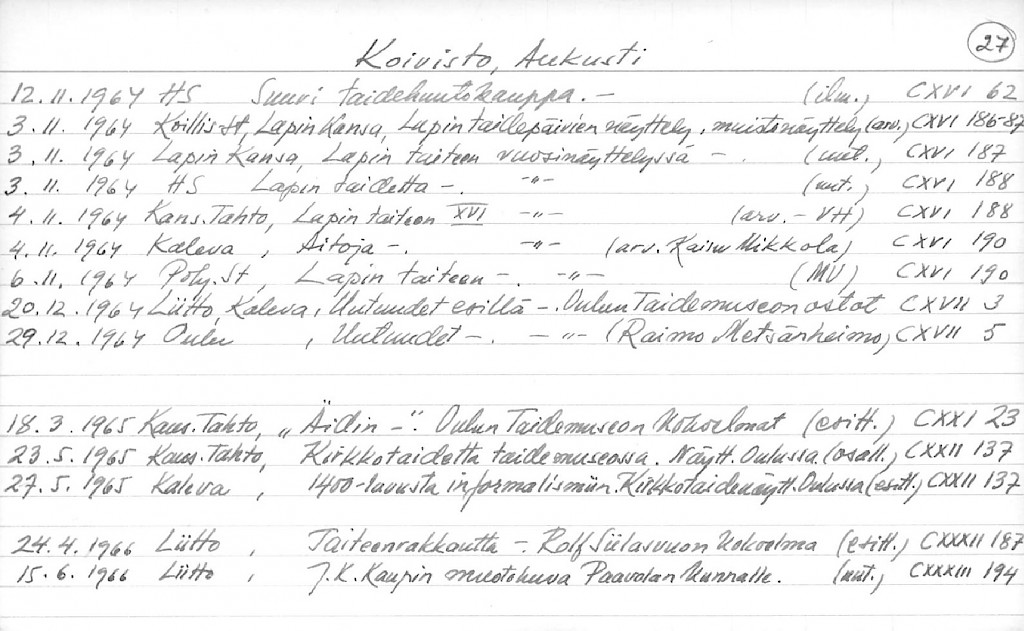 27
Koivisto, Aukusti
12.11.1964 HS Suuri taidehuutokauppa. – (ilm.) CXVI 62
3.11.1964 Koillis-St, Lapin Kansa, Lapin taidepäivien näyttely, muistonäyttely (arv.) CXVI 186-87
3.11.1964 Lapin Kansa, Lapin taiteen vuosinäyttelyssä –. (uut.) CXVI 187
3.11.1964 HS Lapin taidetta –. –"– (uut.) CXVI 188
4.11.1964 Kans.Tahto, Lapin taiteen XVI –"– (arv. – VH) CXVI 188
4.11.1964 Kaleva, Aitoja –. –"– (arv. Kaisu Mikkola) CXVI 190
6.11.1964 Pohj.St, Lapin taiteen –. –"– (MV) CXVI 190
20.12.1964 Liitto, Kaleva, Uutuudet esillä –. Oulun Taidemuseon ostot CXVII 3
29.12.1964 Oulu, Uutuudet –. –"– (Raimo Metsänheimo) CXVII 5
18.3.1965 Kans.Tahto, "Äidin –". Oulun Taidemuseon kokoelmat (esitt.) CXXI 23
23.5.1965 Kans.Tahto, Kirkkotaidetta taidemuseossa. Näytt. Oulussa (osall.) CXXII 137
27.5.1965 Kaleva, 1400-luvusta informalismiin. Kirkkotaidenäytt. Oulussa (esitt.) CXXII 137
24.4.1966 Liitto, Taiteenrakkautta –. Rolf Siilasvuon kokoelma (esitt.) CXXXII 187
15.6.1966 Liitto, J.K. Kaupin muotokuva Paavolan kunnalle. (uut.) CXXXIII 194